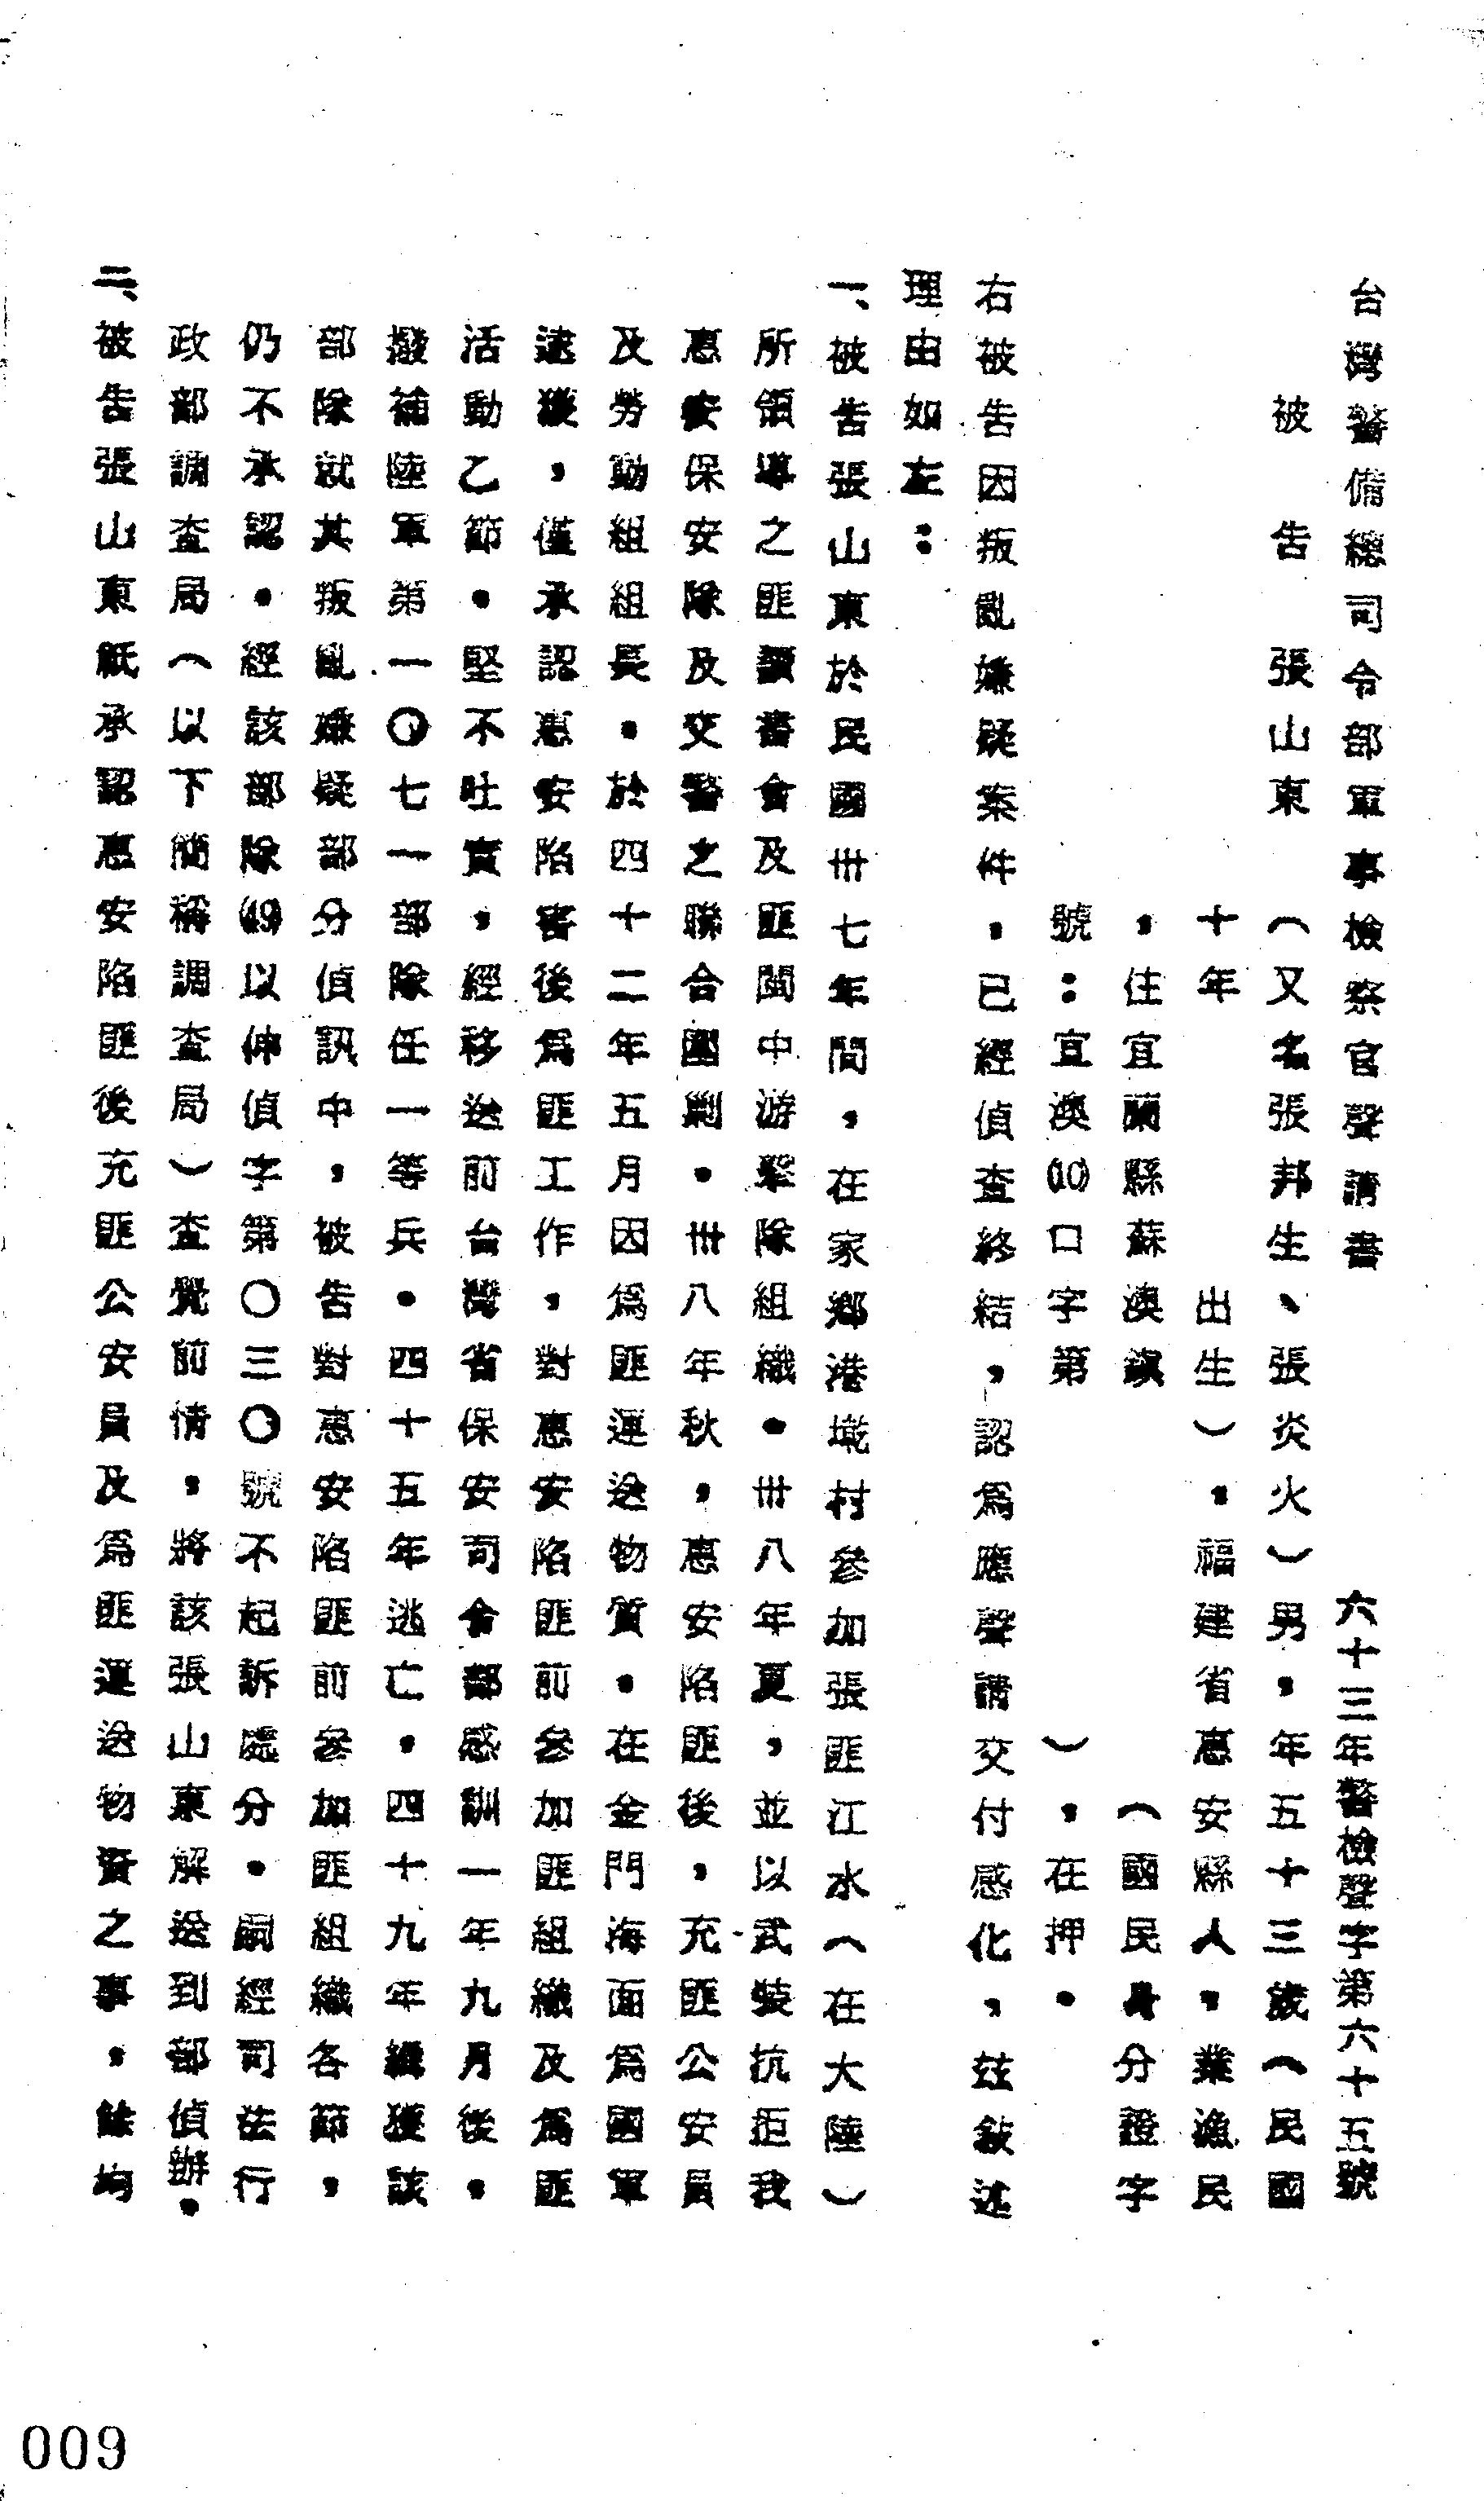 台灣警備總司令部軍事檢察官聲請書
六十三年警檢聲字第六十五號
被告 張山東(又名張邦生、張炎火)男,年五十三歲(民國
十年 出生),福建省惠安縣人,業漁民
,住宜蘭縣蘇澳鎮 (國民身分證字
號:宜澳(10)口字第 ),在押。
右被告因叛亂嫌疑案件,已經偵查終結,認爲應聲請交付感化,玆敍述
理由如左:
一、被告張山東於民國卅七年間,在家鄉港墘村參加張匪江水(在大陸)
所領導之匪讀書會及匪閩中游擊隊組織。卅八年夏,並以武裝抗拒我
惠安保安隊及交警之聯合圍剿。卅八年秋,惠安陷匪後,充匪公安員
及勞動組組長。於四十二年五月因爲匪運送物質。在金門海面爲國軍
逮獲,僅承認惠安陷匪後爲匪工作,對惠安陷匪前參加匪組織及爲匪
活動乙節。堅不吐實,經移送前台灣省保安司令部感訓一年九月後。
撥補陸軍第一〇七一部隊任一等兵。四十五年逃亡,四十九年緝獲該
部隊就其叛亂嫌疑部分偵訊中,被告對惠安陷匪前參加匪組織各節,
仍不承認。經該部隊(49)以伸偵字第〇三〇號不起訴處分。嗣經司法行
政部調查局(以下簡稱調查局)查覺前情,將該張山東解送到部偵辦。
二、被告張山東祇承認惠安陷匪後充匪公安員及爲匪運送物資之事,餘均
009